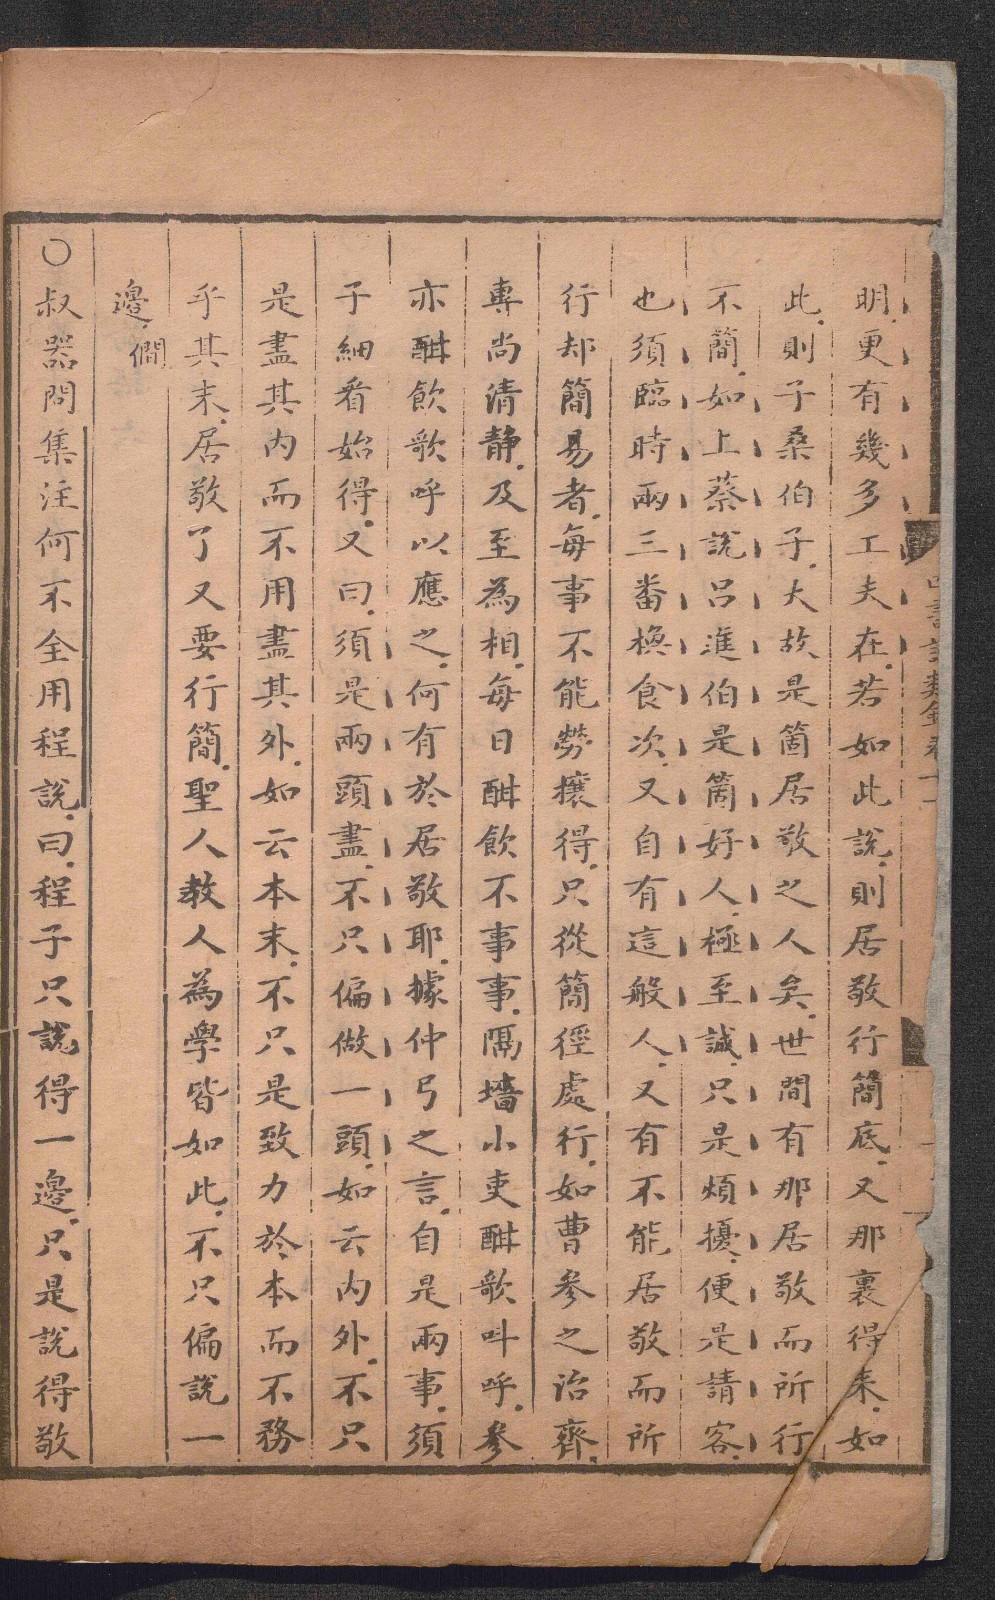 四書語類鈔卷十一
明更有幾多工夫在若如此說則居敬行簡底又那裏得來如
此則子桑伯子大故是箇居敬之人矣世間有那居敬而所行
不簡如上蔡說呂進伯是箇好人極至誠只是煩擾便是請客
也須臨時兩三番換食次又自有這般人又有不能居敬而所
行却簡易者每事不能勞攘得只從簡徑處行如曹參之治齊
專尚清静及至為相每日酣飲不事事隔墻小吏酣歌呌呼參
亦酣飲歌呼以應之何有於居敬耶據仲弓之言自是兩事須
子細看始得又曰須是兩頭盡不只偏做一頭如云内外不只
是盡其内而不用盡其外如云本末不只是致力於本而不務
乎其末居敬了又要行簡聖人教人為學皆如此不只偏說一
邊僩
〇叔器問集注何不全用程說曰程子只說得一邊只是說得敬